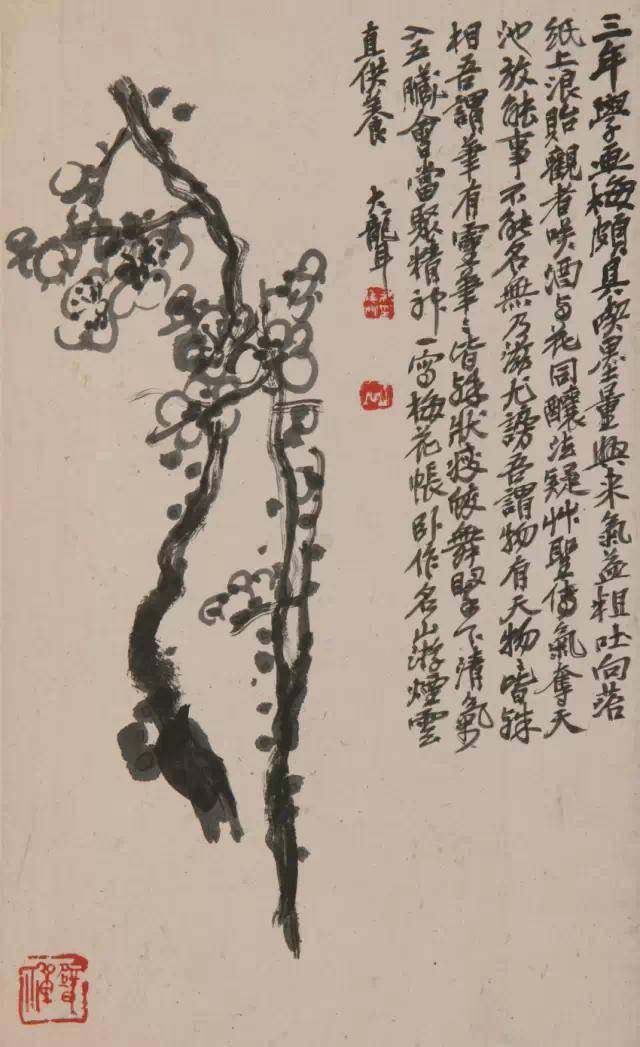 三年學画梅頗具喫墨量興來氣益粗吐向苔
紙上浪貽觀者咲酒与花同釀法疑艸聖傳氣奪天
池放能事不能名無乃滋尤謗吾謂物有天物〻皆殊
相吾謂筆有靈筆〻皆殊狀瘦蛟舞腕下清氣
入五臟會當聚精神一寫梅花帳卧作名山游煙雲
真供養 大聾